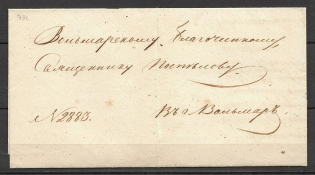 Вольмарскому Благочинному,
Священнику
№ 2883.
Въ г. Вольмаръ.